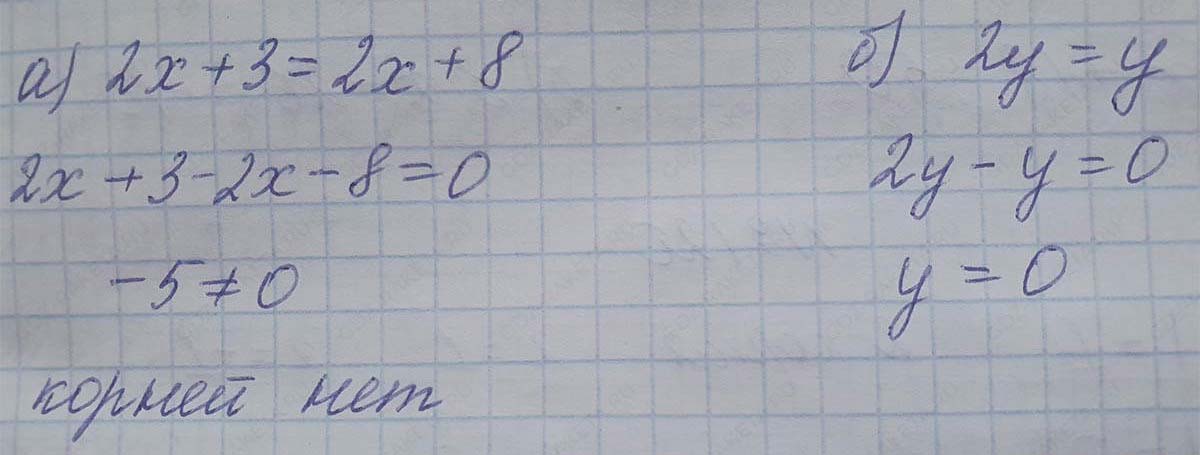 а) 2x + 3 = 2x + 8
2x + 3 - 2x - 8 = 0
-5 ≠ 0
корней нет
б) 2y = y
2y - y = 0
y = 0